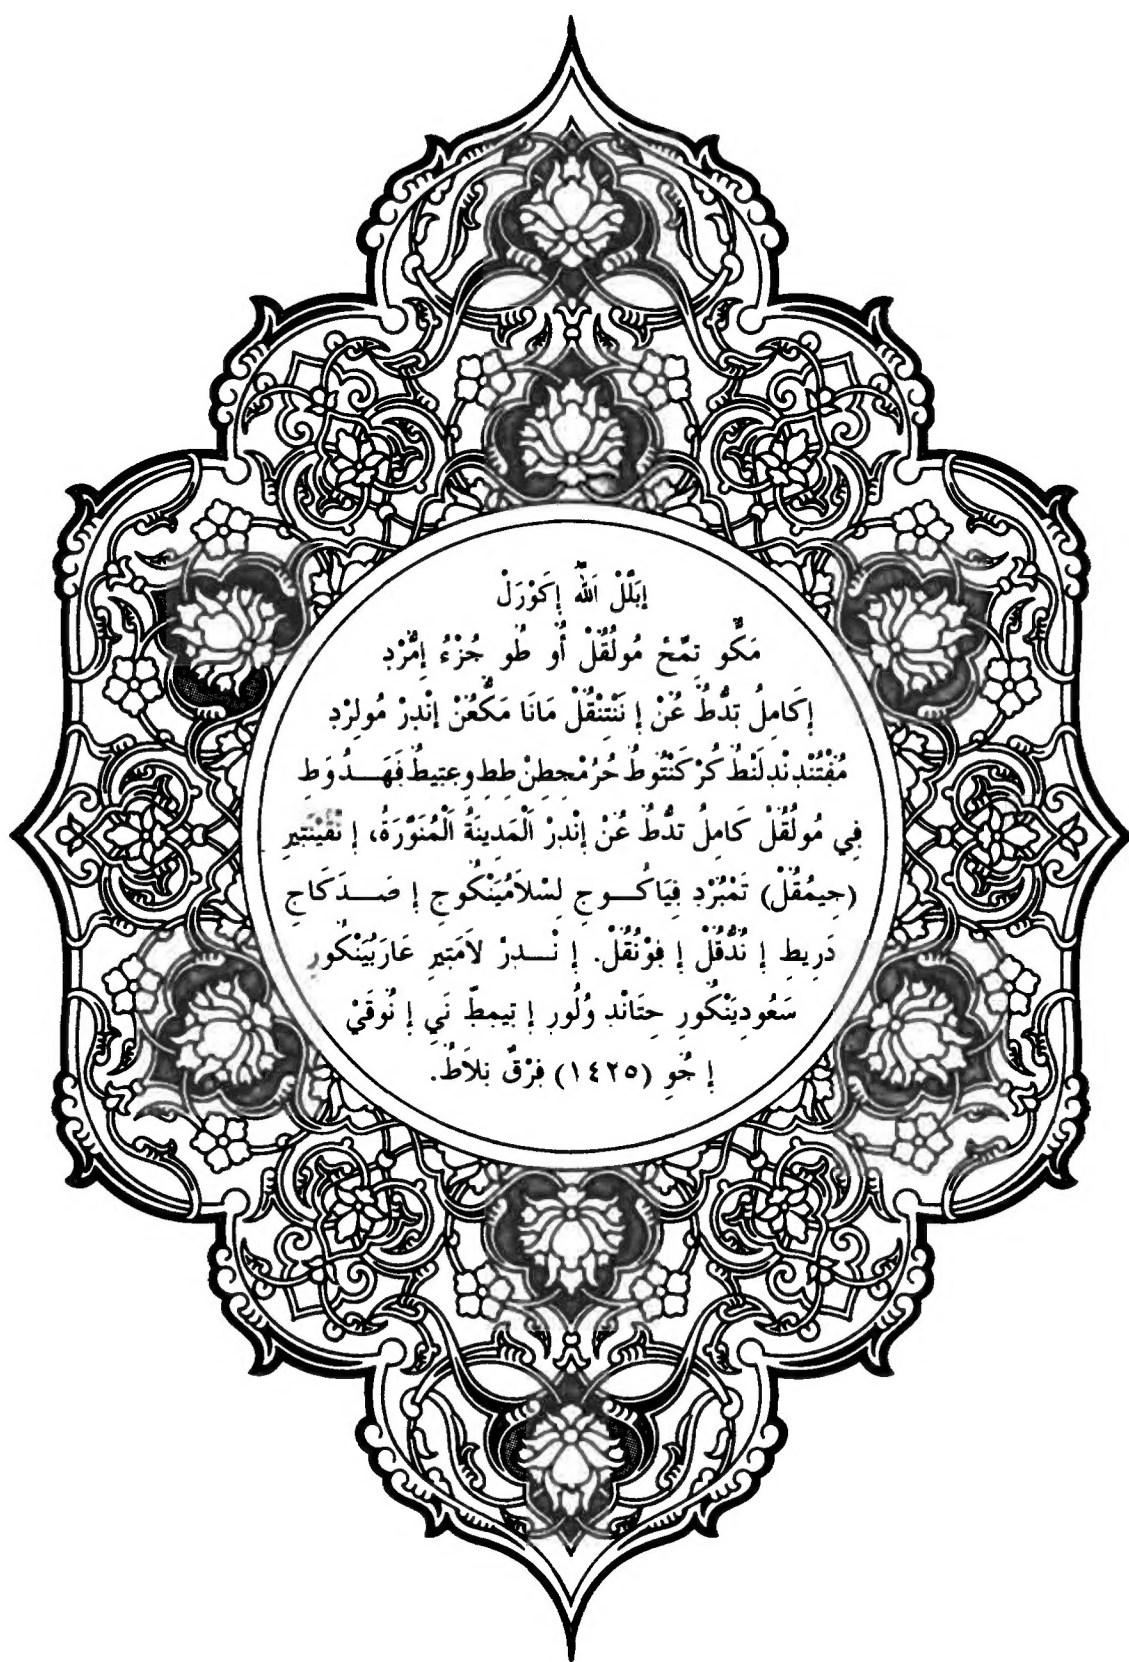 إِبَلَّلْ اَللّٰه إِكَوْرَلْ
مَكُّو تِمَّحْ مُولُقُلْ أُو طُو جُزْءُ إِمُّرْدِ
إِكَامِلُ تِدُّطُ عُنْ إِ نَنْتِنْقُلْ مَانَا مَكُّعُنْ إِنْدِرْ مُولِرْدِ
مُفْتُنْدِنْدِلَنْطُ كُرْكَنْتُوطُ حُرُمْجِطِنْ طِطِ وعِتِيطُ فَهَدُوَطِ
فِي مُولُقُلْ كَامِلُ تِدُّطُ عُنْ إِنْدِرْ اَلْمَدِينَةُ اَلْمُنَوَّرَةُ، إِ نْفَيْنَتِيرِ
(حِيمُقُلْ) تَمْبُرْدِ فِيَاكُوجِ لِسْلَامُيَنْكُوجِ إِ صَدَكَاجِ
دَرِيطِ إِ نُدُّقُلْ إِ فِوْنُقُلْ. إِ نْدِرْ لَامَتِيرِ عَارَبُيَنْكُورِ
سَعُودِيَنْكُورِ حِتَانْدِ وُلُورِ إِ تِيمِطِّ نَيِ إِ نُوقَيْ
إِ جُوِ (١٤٢٥) فِرْقٌ نِلَاطُ.